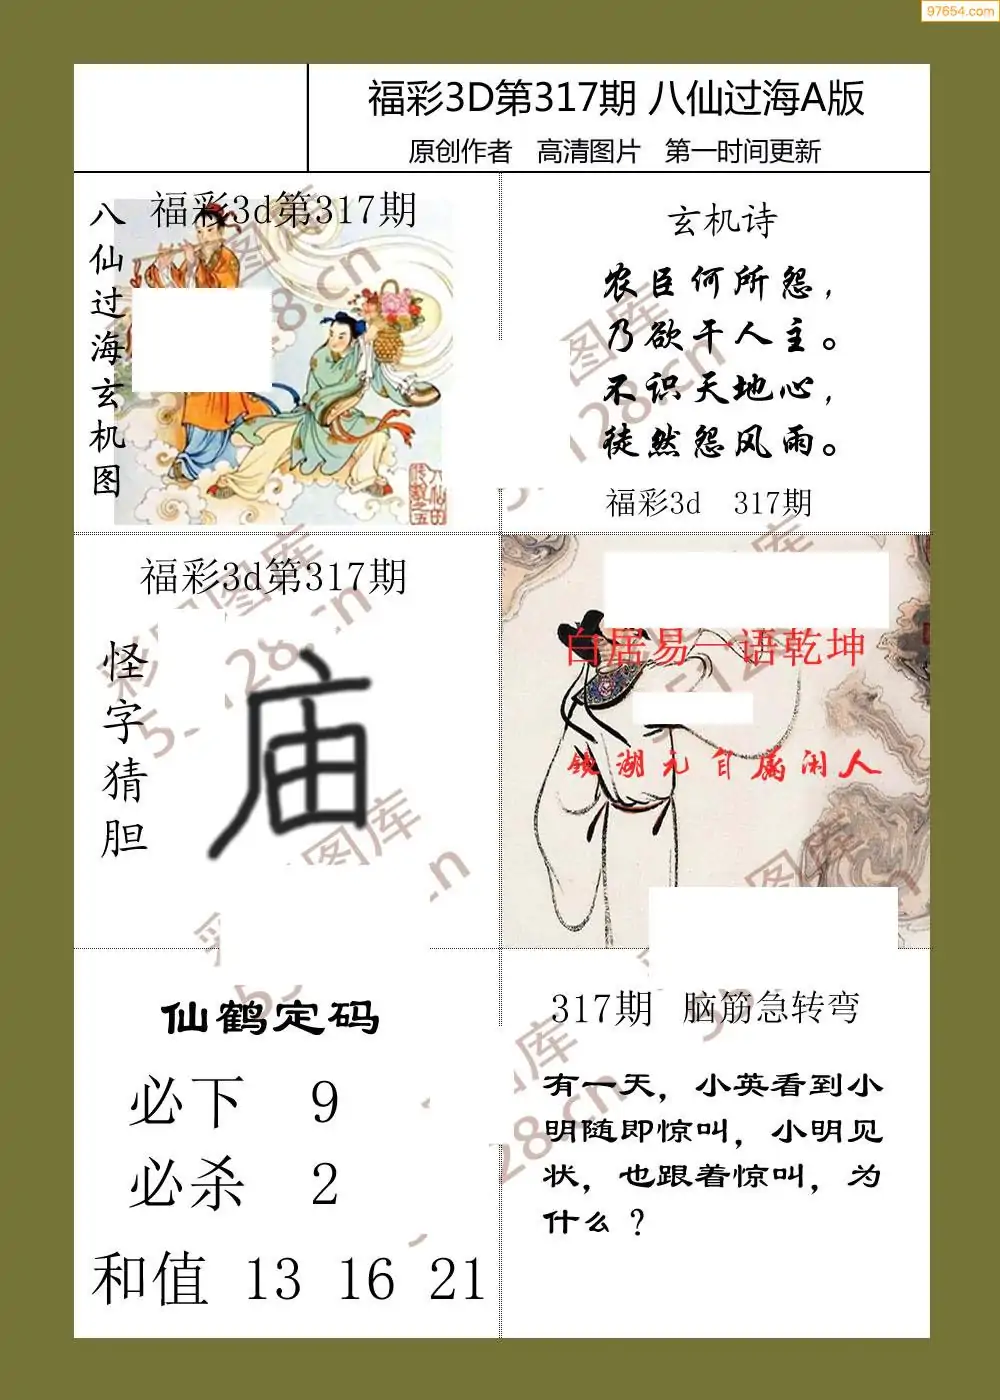 97654.com
福彩3D第317期 八仙过海A版
原创作者 高清图片 第一时间更新
福彩3d第317期
八仙过海玄机图
玄机诗
农臣何所怨，
乃欲干人主。
不识天地心，
徒然怨风雨。
福彩3d 317期
福彩3d第317期
怪字猜胆
庙
白居易一语乾坤
镜湖元自属闲人
仙鹤定码
必下 9
必杀 2
和值 13 16 21
317期 脑筋急转弯
有一天，小英看到小
明随即惊叫，小明见
状，也跟着惊叫，为
什么？